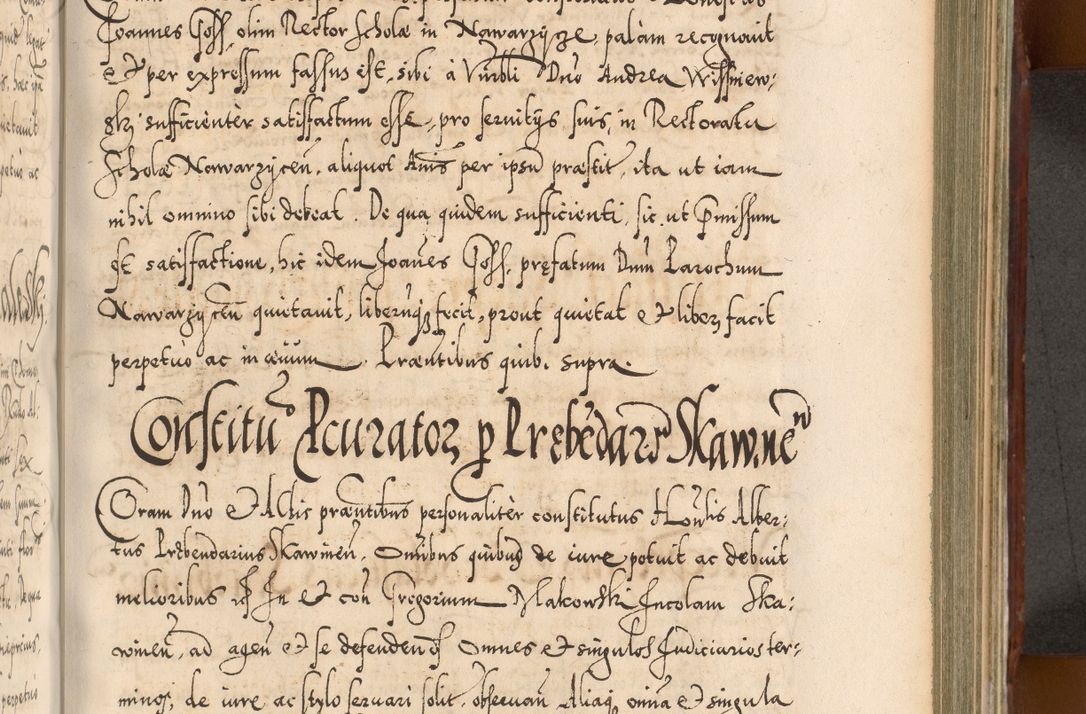 Joannes Goss, olim Rector Scholæ in Nawarzyce, palàm recognovit
& per expressum fassus est, sibi à Vnrbli Dno Andrea Wissniew-
skj sufficientèr satisfactum esse, pro servitijs suis, in Rectoratu
Scholæ Nawarzycen, aliquot Anis per ipsu præstit, ita ut iam
nihil omnino sibi debeat. De qua quidem sufficienti, sic ut Pmissum
est satisfactione, hic idem Joanes Goss, prefatum Dnu Parochum
Nawarzycen quietavit, liberuq3 fecit, prout quietat & liber facit
perpetuo ac in ævum. Præntibus quib. supra
Constitu Pcurator p Prebedar Skawinen
Coram Dno & Actis præntibus personalitèr constitutus Honlis Alber-
tus Prebendarius Skawinen, Omibus quibus de iure potuit ac debuit
melioribus In & con Gregorium Makowski Incolam Ska-
winen, ad agen & se defenden Omnes & singulos Judiciarios ter-
minos, de iure ac stylo servari solit. observan Aliaq omnia & singula